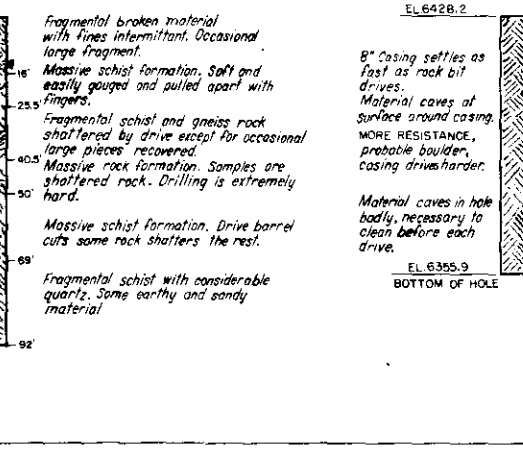 Fragmental broken material
with fines intermittant. Occasional
large fragment.
16'
Massive schist formation. Soft and
easily gouged and pulled apart with
fingers.
25.5'
Fragmental schist and gneiss rock
shattered by drive except for occasional
large pieces recovered.
40.5'
Massive rock formation. Samples are
shattered rock. Drilling is extremely
hard.
50'
Massive schist formation. Drive barrel
cuts some rock shatters the rest.
69'
Fragmental schist with considerable
quartz. Some earthy and sandy
material
92'
EL.6428.2
8" Casing settles as
fast as rock bit
drives.
Material caves at
surface around casing.
MORE RESISTANCE,
probable boulder,
casing drives harder.
Material caves in hole
badly, necessary to
clean before each
drive.
EL.6355.9
BOTTOM OF HOLE